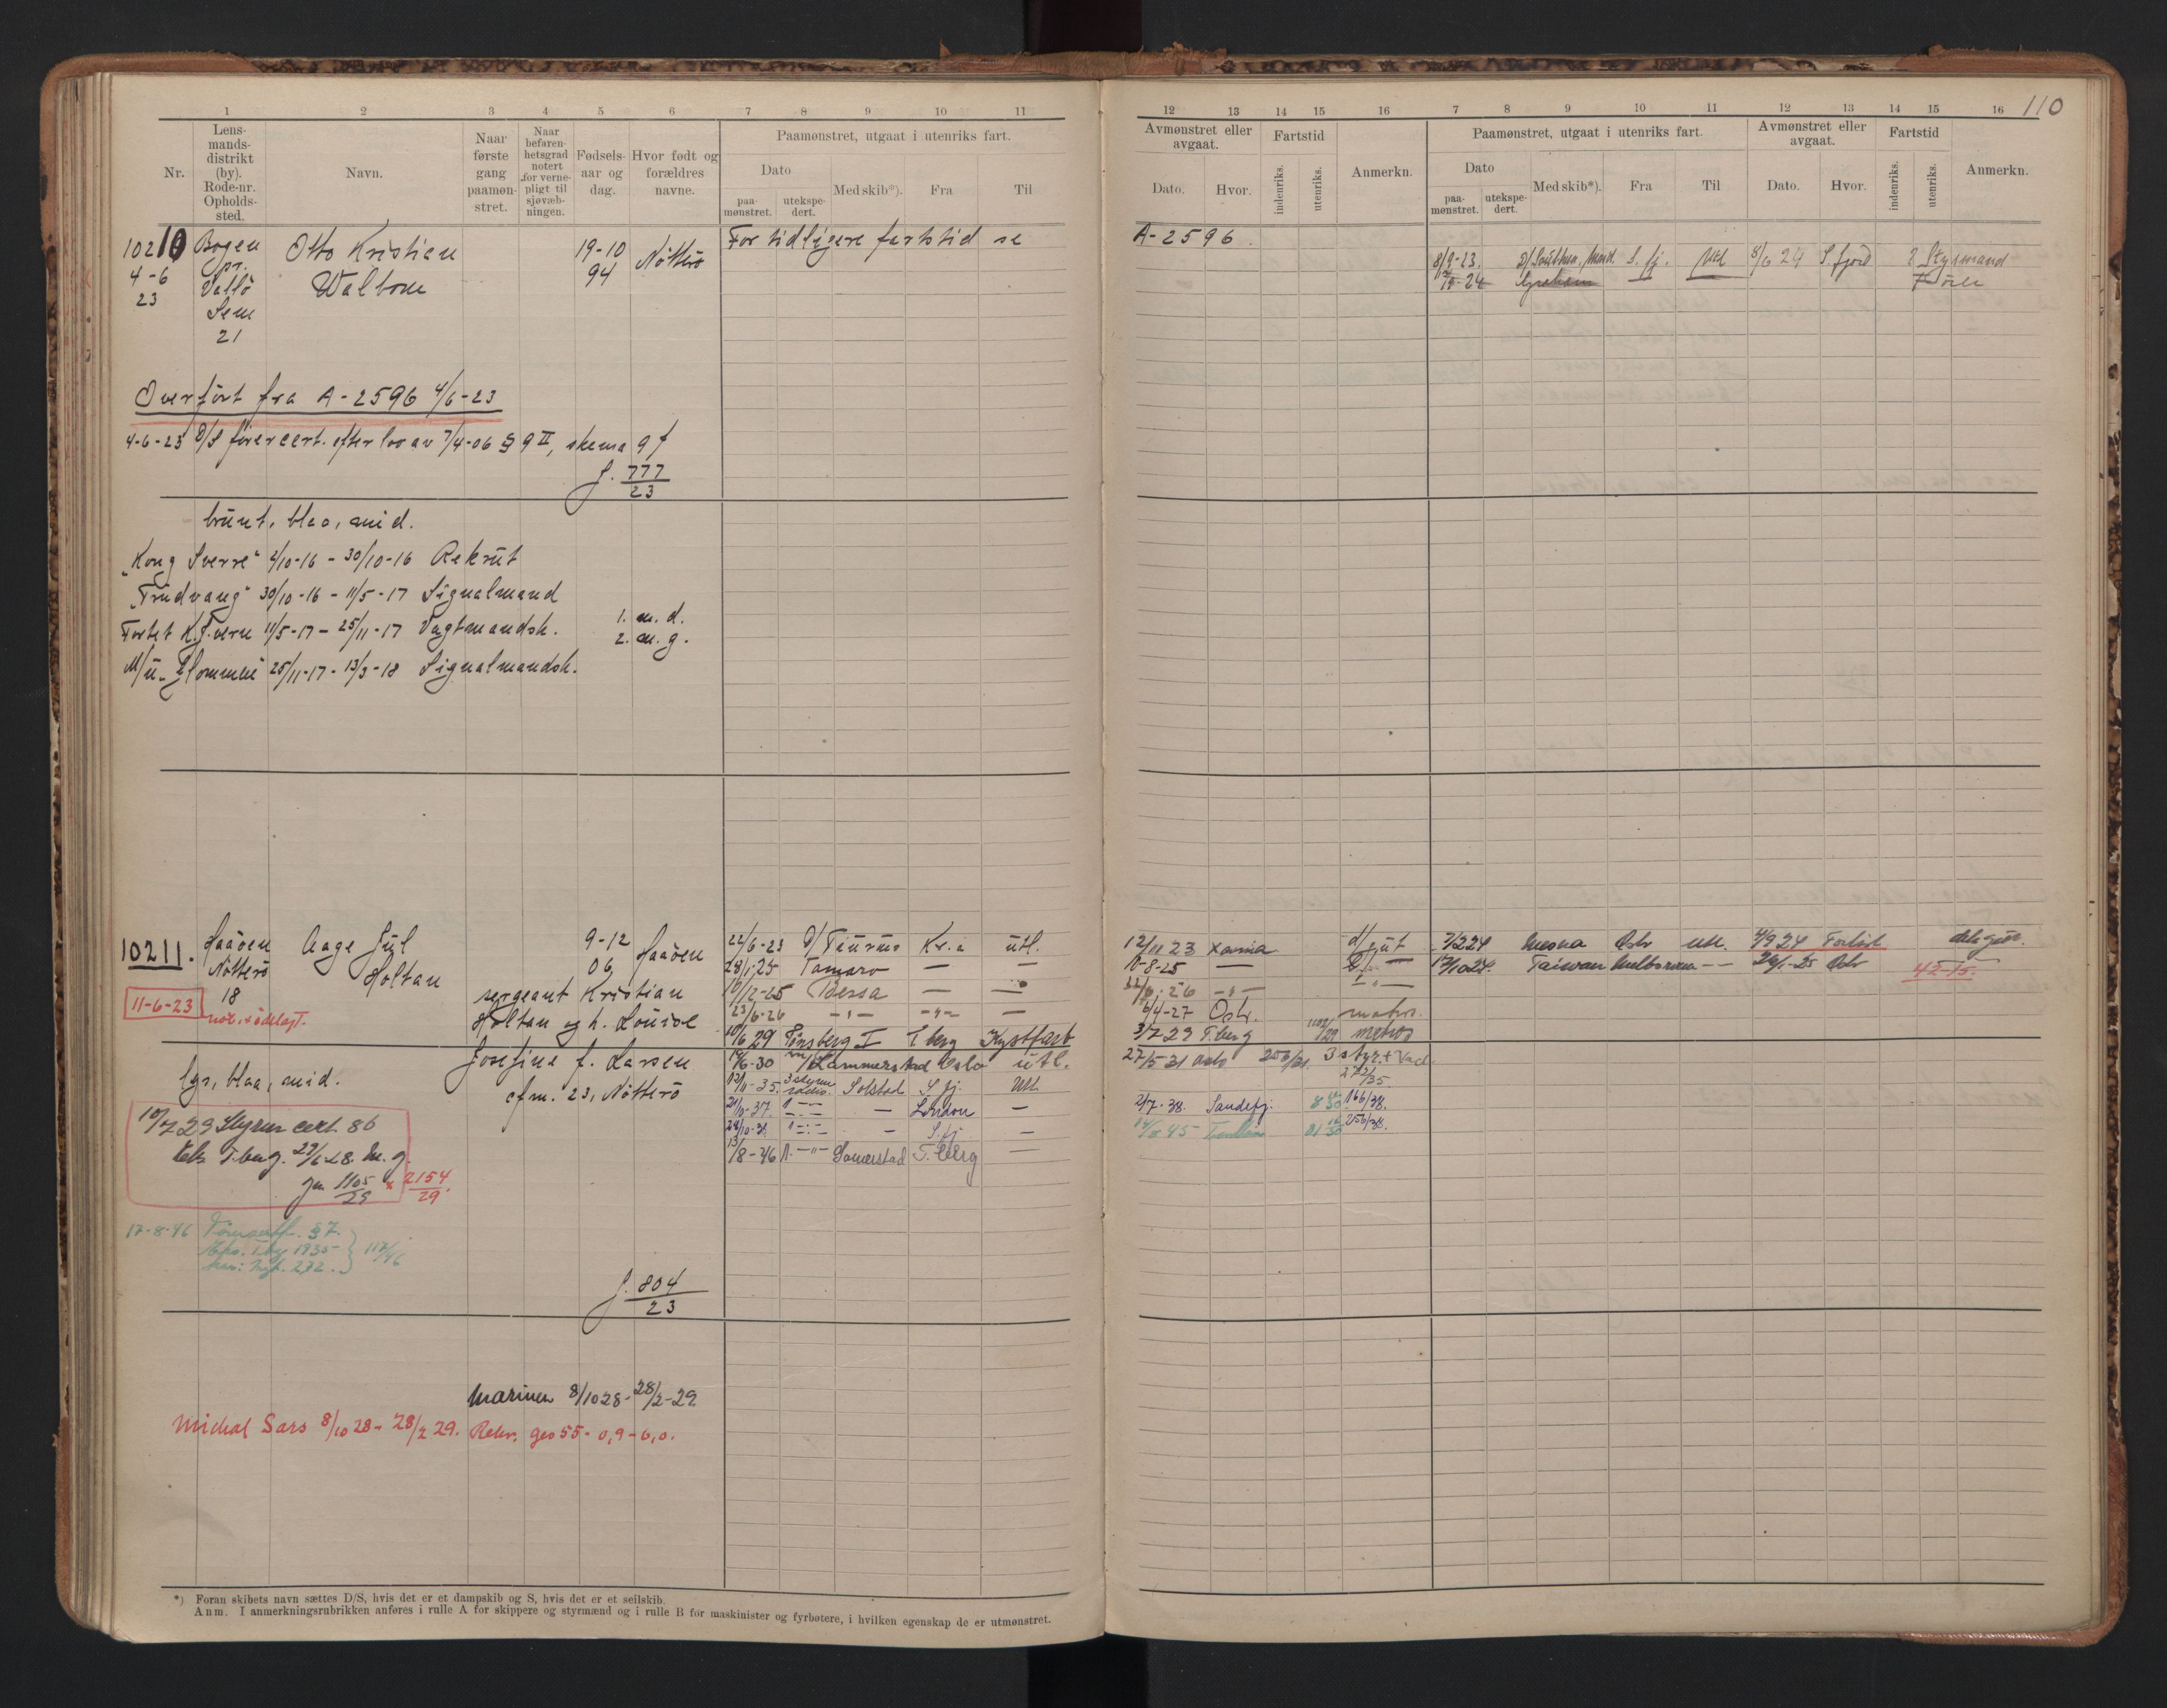 110
1 2 3 4 5 6 7 8 9 10 11
Nr.
Lens-
mands-
distrikt
(by).
Rode-nr.
Opholds-
sted.
Navn.
Naar
første
gang
paamøn-
stret.
Naar
befaren-
hetsgrad
notert
for verne-
pligt til
sjøvæb-
ningen.
Fødsels-
aar og
dag.
Hvor født og
forældres
navne.
Paamønstret, utgaat i utenriks fart.
Dato
paa-
mønstret.
utekspe-
dert.
Med skib*).
Fra
Til
12 13 14 15 16 7 8 9 10 11 12 13 14 15 16
Avmønstret eller
avgaat.
Dato.
Hvor.
Fartstid
indenriks.
utenriks.
Anmerkn.
Paamønstret, utgaat i utenriks fart.
Dato
paa-
mønstret.
utekspe-
dert.
Med skib*).
Fra
Til
Avmønstret eller
avgaat.
Dato.
Hvor.
Fartstid
indenriks.
utenriks.
Anmerkn.
10210
4-6
23
Bogen
pr.
Vallö
Sem
21
Otto Kristian
Walbom
19-10
94
Nötterö
For tidligere fartstid se
A-2596.
8/9-23. S. fj. Utl 8/6 24 S. fjord 2 Styrmand
Overfört fra A-2596 4/6-23
4-6-23 D/S förercert. efter lov av 7/4-06 § 9 II, skema 9 f
J. 777
23
brünt, blaa, mid.
"Kong Sverre" 2/10-16 - 30/10-16 Rekrüt
"Trudvang" 30/10-16 - 11/5-17 Signalmand
Fortet K. Sverre 11/5-17 - 25/11-17 Vagtmandsk.
1. m. d.
2. m. g.
M/ü "Glommen" 25/11-17 - 13/3-18 Signalmandsk.
10211.
11-6-23
Haaöen
Nötterö
18
Aage Jül
Holtan
9-12
06
Haaöen
sergeant Kristian
Holtan og h. Louise
Josefine f. Larsen
cfm. 23, Nötterö
lys, blaa, mid.
22/6-23 D/ Taurus Kr.a utl.
28/1-25 Tamaro — —
10/12-25 Bessa — —
23/6-26 -"- -"- —
10/6 29 Tönsberg I T.berg Kystfart
19/6-30 Lammerstad Oslo utl.
13/11-35. Solstad S. fj. Utl.
— London —
— S. fj —
13/8-46 Somerstad T. berg —
12/11 23 Xania d/gut
10-8-25 —
6/4-27 Oslo. matr.
3/7 29 T.berg matros
27/5-31 Oslo 256/31. 3 styr.
272/35.
2/7-38. Sandefj. 166/38.
256/38.
7/2 24 Mesna Oslo utl. 4/9 24 Forlist dæksgut.
17/10 24. Taiwan Melborne -- 26/1-25 Oslo
42-15.
10/7 29 Styrm cert. 86
Eks. T.berg. 29/6-28. M. g.
Jn. 1105
29
2154
29.
17-8-46
§ 7.
1935
272.
117/46
J. 804
23
Marinen 8/10 28 - 28/2-29
Michal Sars 8/10 28 - 28/2 29. Rekr. ges 55 - 0,9 - 6,0.
*) Foran skibets navn sættes D/S, hvis det er et dampskib og S, hvis det er et seilskib.
Anm. I anmerkningsrubrikken anføres i rulle A for skippere og styrmænd og i rulle B for maskinister og fyrbøtere, i hvilken egenskap de er utmønstret.